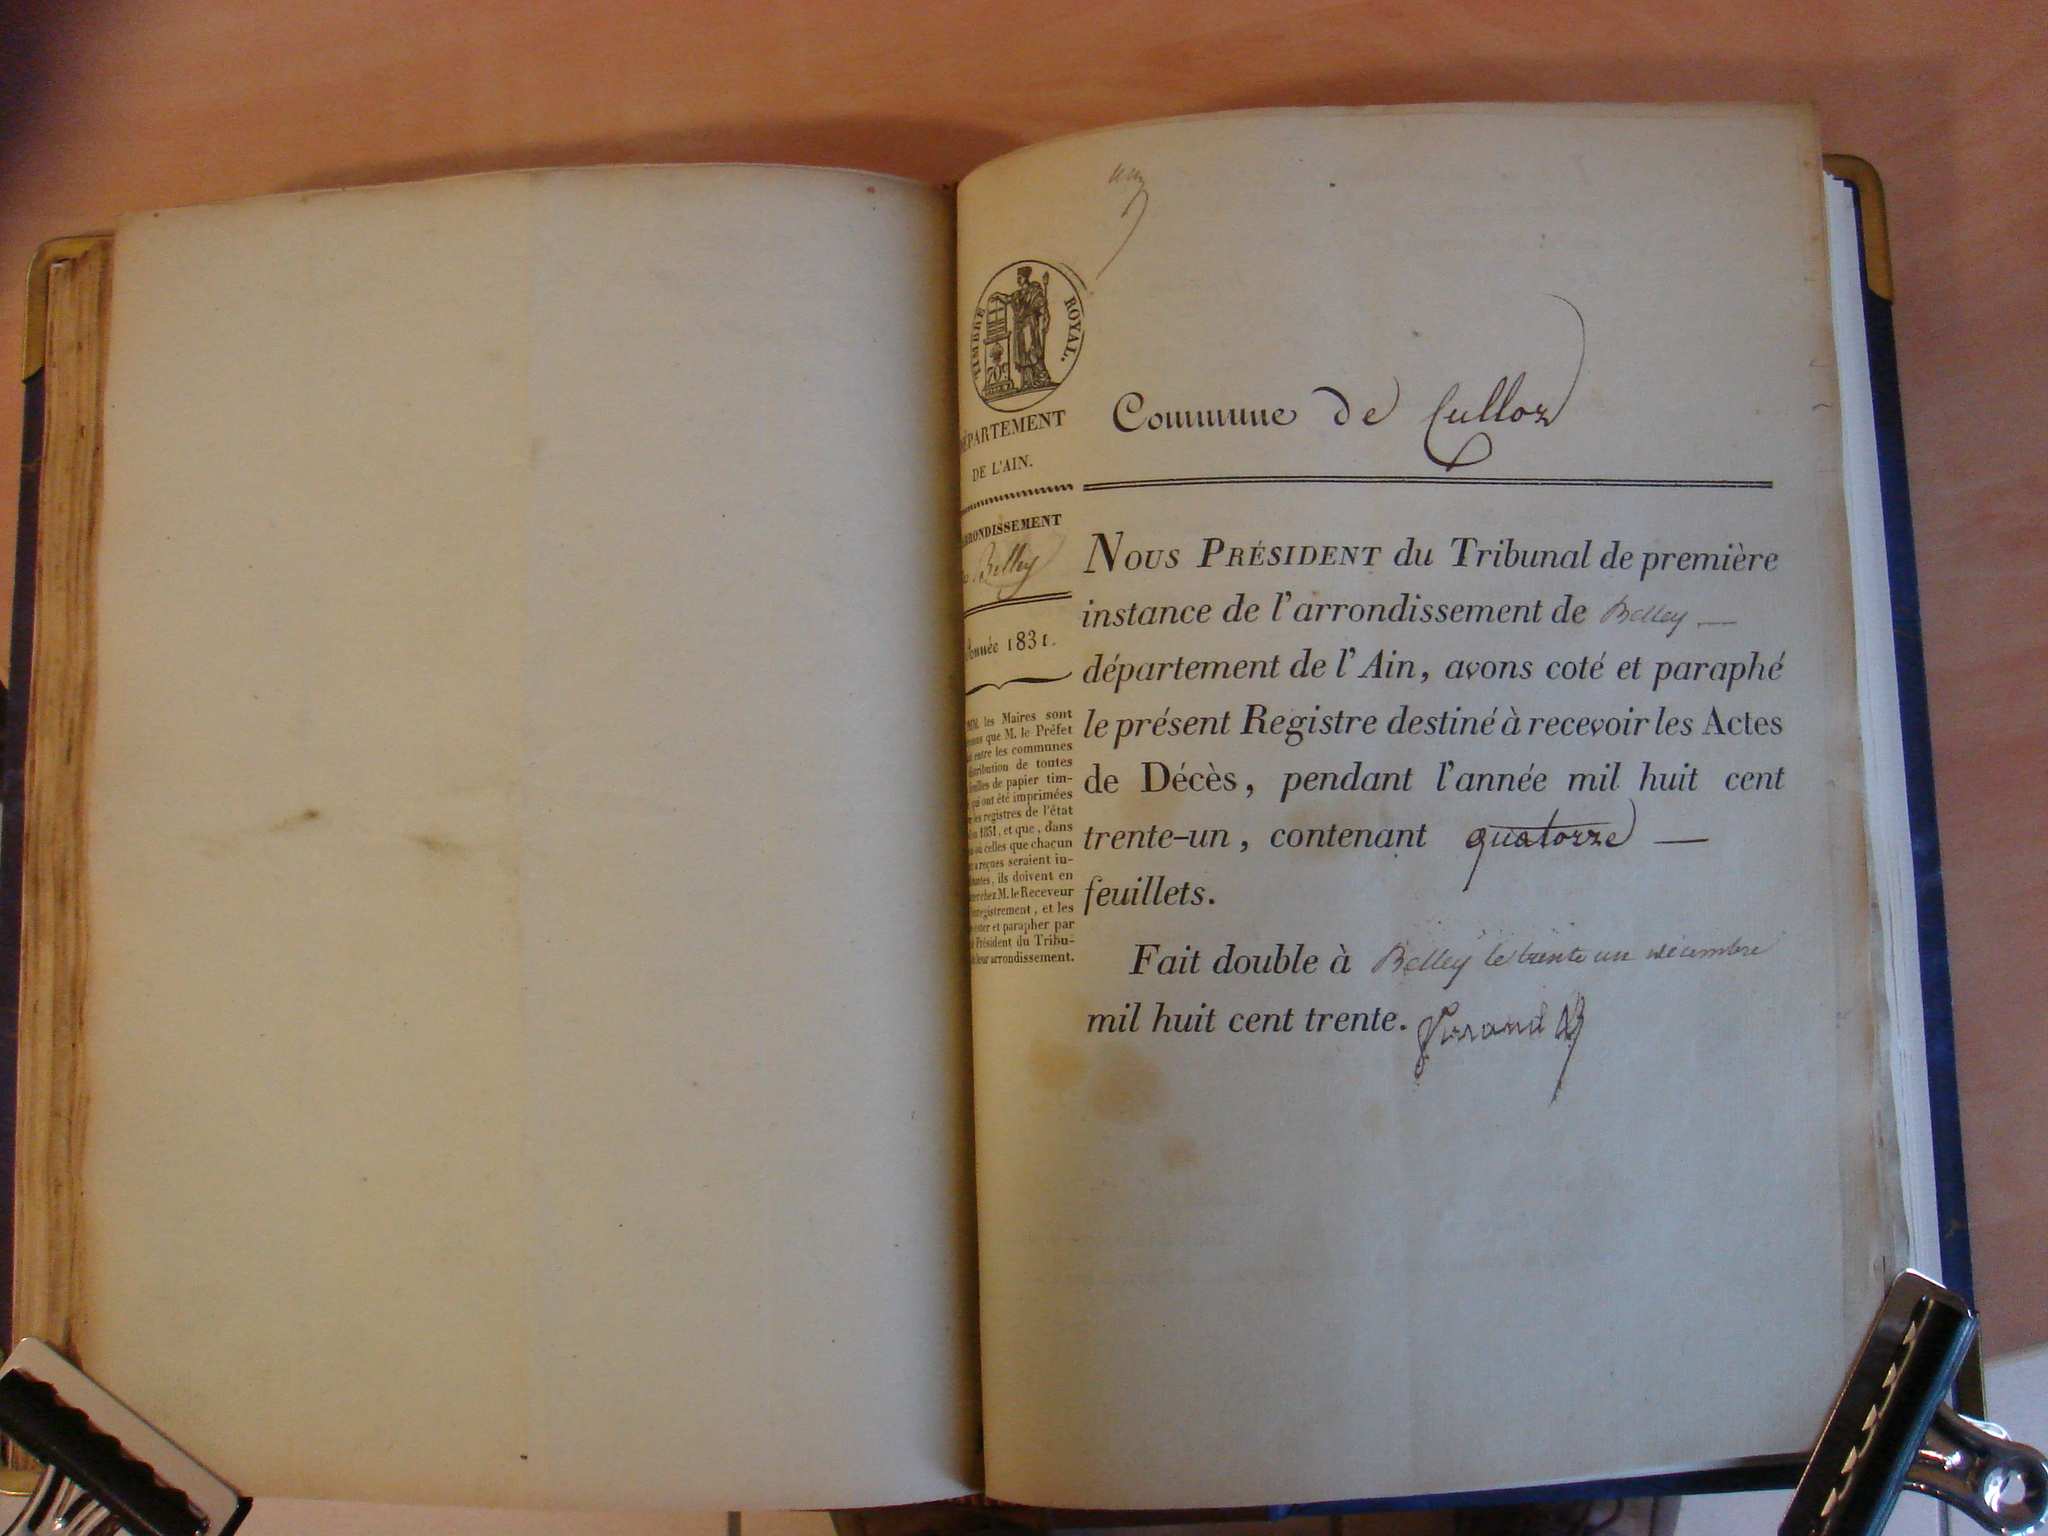 TIMBRE ROYAL.
DÉPARTEMENT
DE L'AIN.
ARRONDISSEMENT
Belley
Année 1831.
les Maires sont
que M. le Préfet
entre les communes
distribution de toutes
feuilles de papier tim-
qui ont été imprimées
les registres de l'état
1831, et que, dans
celles que chacun
reçues seraient in-
ils doivent en
chez M. le Receveur
enregistrement, et les
et parapher par
Président du Tribu-
leur arrondissement.
Commune de Culloz
NOUS PRÉSIDENT du Tribunal de première
instance de l'arrondissement de Belley —
département de l'Ain, avons coté et paraphé
le présent Registre destiné à recevoir les Actes
de Décès, pendant l'année mil huit cent
trente-un, contenant quatorze —
feuillets.
Fait double à Belley le trente un décembre
mil huit cent trente.